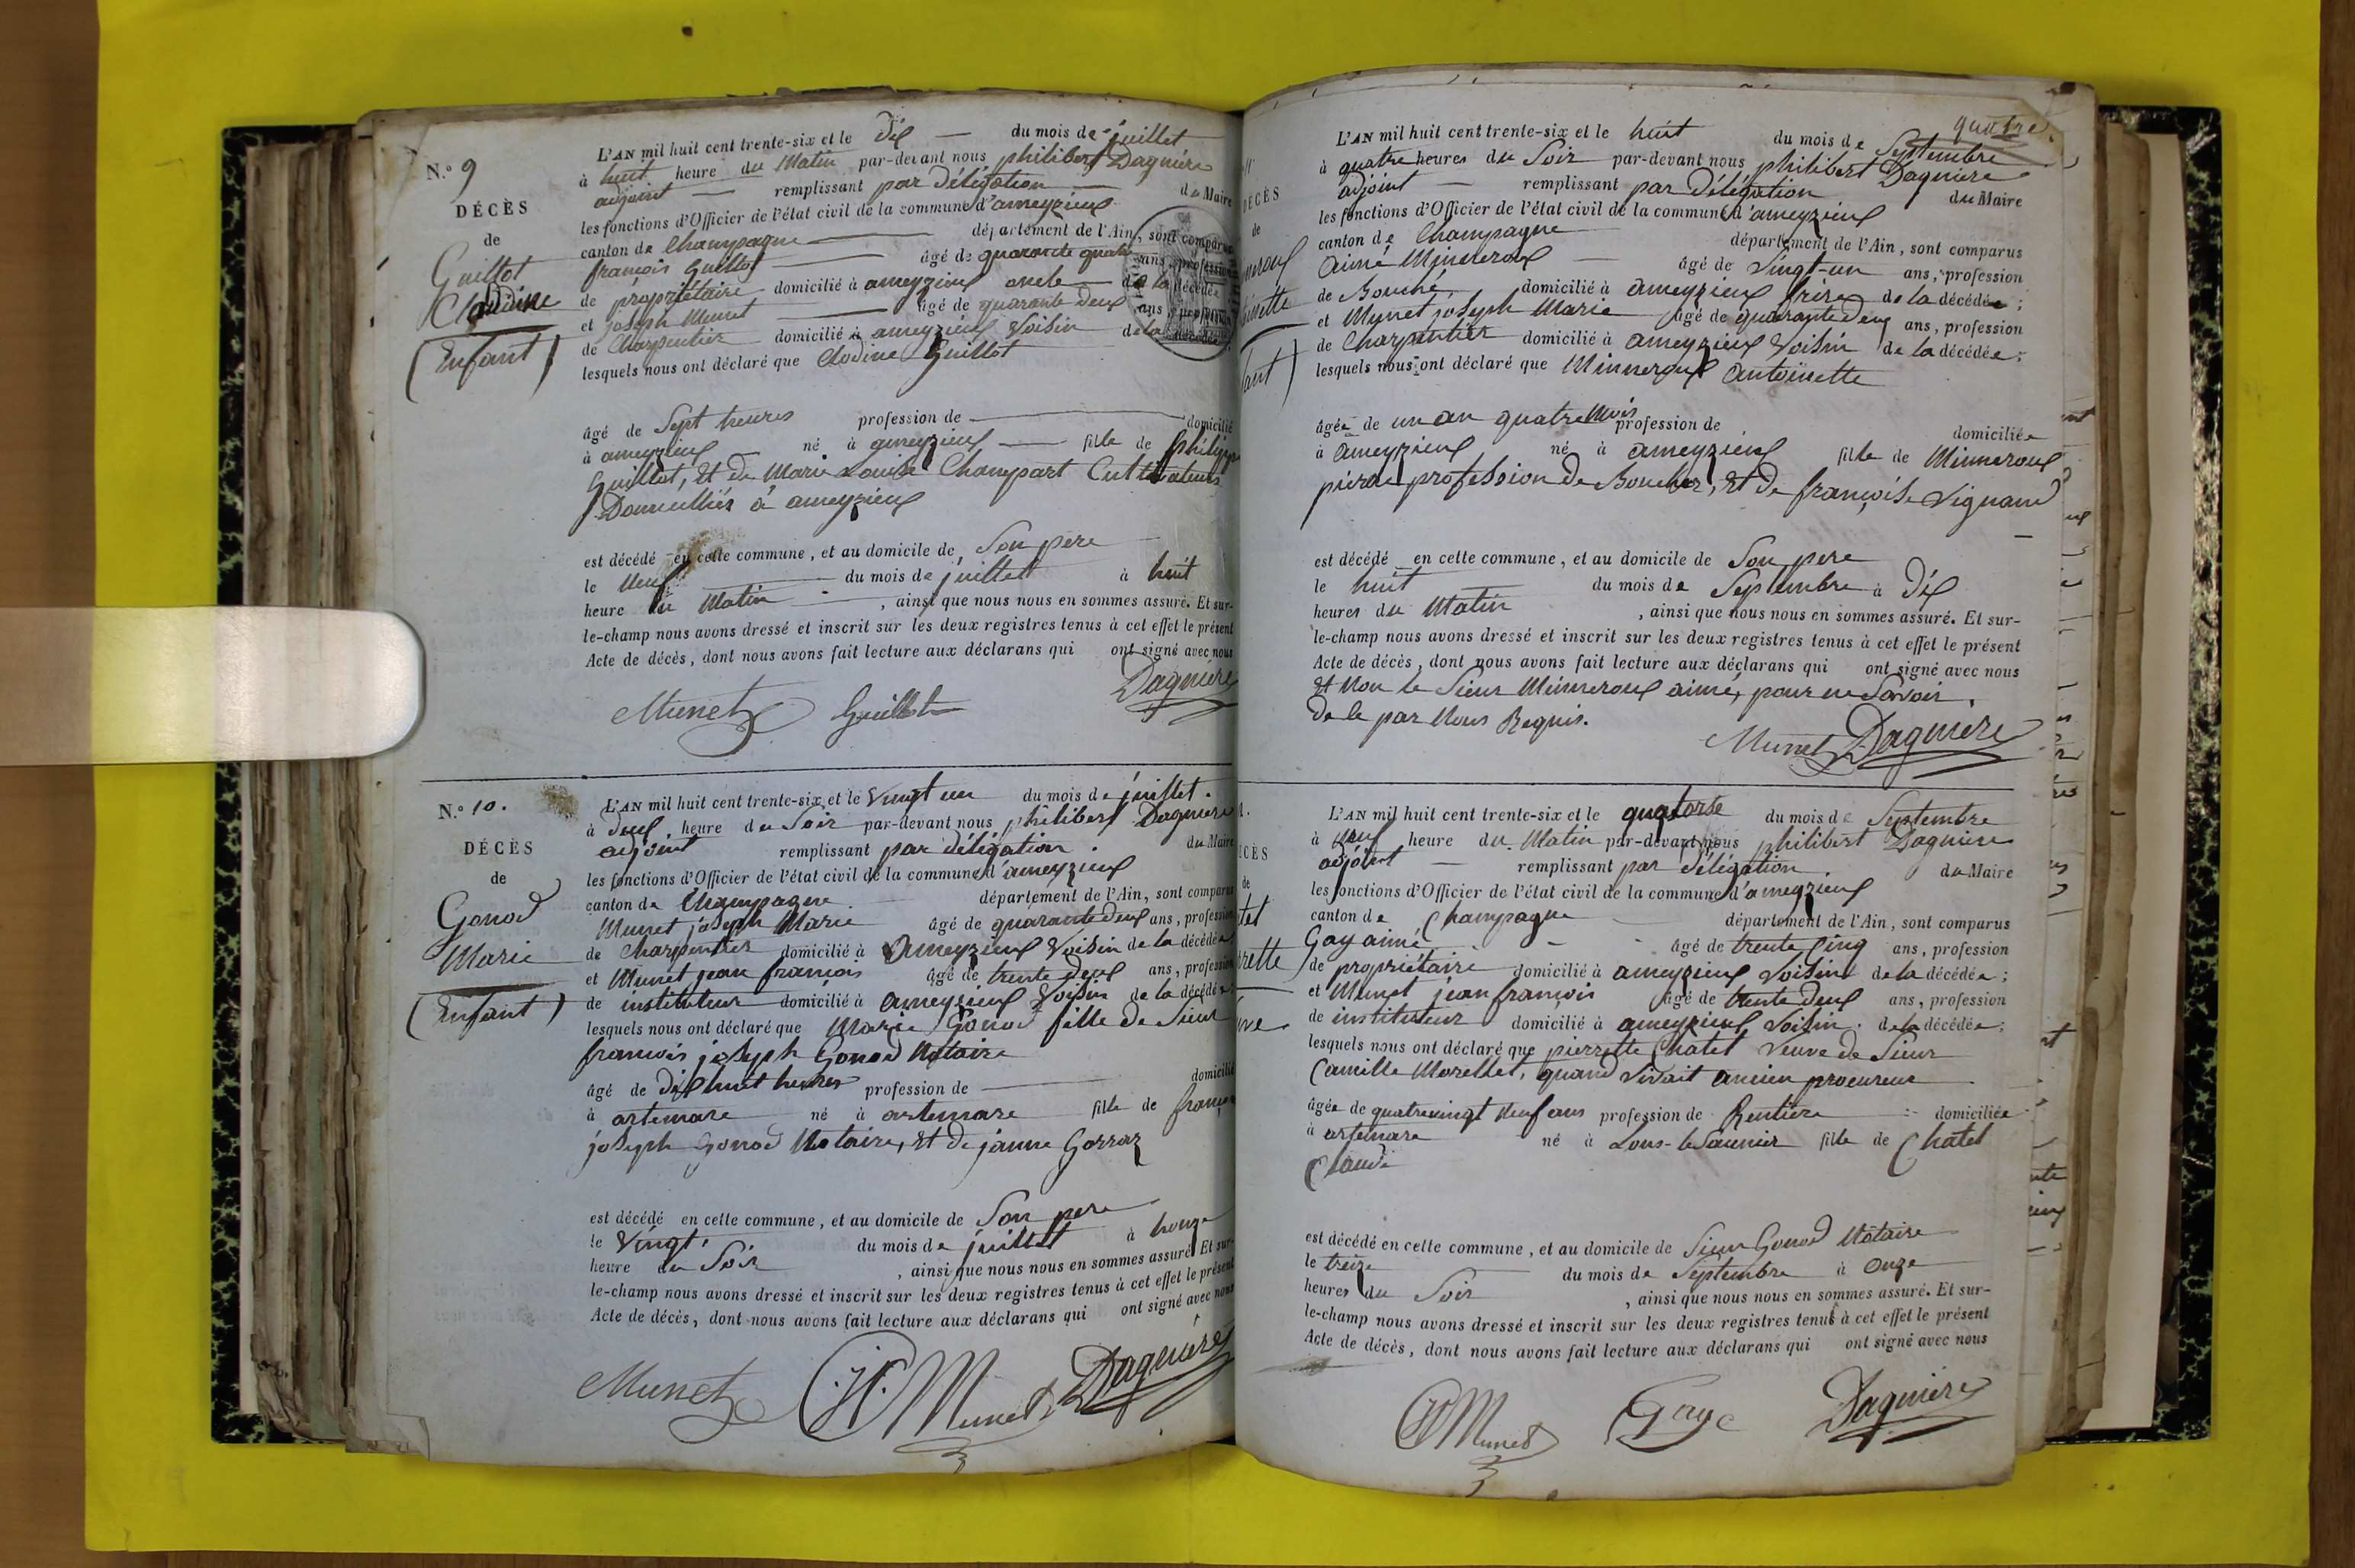 N.° 9
DÉCÈS
de
Guillot
Claudine
(Enfant)
L'AN mil huit cent trente-six et le dix du mois de juillet
à huit heure du Matin par-devant nous philibert Dagnière
adjoint remplissant par délégation du Maire
les fonctions d'Officier de l'état civil de la commune d'ameyzieux
canton de Champagne département de l'Ain, sont comparus
françois Guillot âgé de quarante quatre ans, profession
de propriétaire domicilié à ameyzieux oncle de la décédée
et joseph Munet âgé de quarante deux ans, profession
de Charpentier domicilié à ameyzieux Voisin de la décédée
lesquels nous ont déclaré que Clodine Guillot
âgé de Sept heures profession de domicilié
à ameyzieux né à ameyzieux fille de philippe
Guillot, Et de Marie Louise Champart Cultivateurs
Domicilliés à ameyzieux
est décédé en cette commune, et au domicile de Son pere
le neuf du mois de juillet à huit
heure du Matin, ainsi que nous nous en sommes assuré. Et sur-
le-champ nous avons dressé et inscrit sur les deux registres tenus à cet effet le présent
Acte de décès, dont nous avons fait lecture aux déclarans qui ont signé avec nous
Munet Guillot Dagnière
N.° 10.
DÉCÈS
de
Gonod
Marie
(Enfant)
L'AN mil huit cent trente-six et le Vingt un du mois de juillet.
à deux heure du Soir par-devant nous philibert Dagnière
adjoint remplissant par délégation du Maire
les fonctions d'Officier de l'état civil de la commune d'ameyzieux
canton de Champagne département de l'Ain, sont comparus
Munet joseph Marie âgé de quarante deux ans, profession
de Charpentier domicilié à Ameyzieux Voisin de la décédée
et Munet jean françois âgé de trente deux ans, profession
de instituteur domicilié à ameyzieux Voisin de la décédée
lesquels nous ont déclaré que Marie Gonod fille de Sieur
françois joseph Gonod Notaire
âgé de dix huit heures profession de domicilié
à artemare né à artemare fille de françois
joseph Gonod Notaire, Et de janne Gorraz
est décédé en cette commune, et au domicile de Son pere
le Vingt du mois de juillet à honze
heure du Soir, ainsi que nous nous en sommes assuré. Et sur-
le-champ nous avons dressé et inscrit sur les deux registres tenus à cet effet le présent
Acte de décès, dont nous avons fait lecture aux déclarans qui ont signé avec nous
Munet JF Munet Dagnière
quatre.
DÉCÈS
de
L'AN mil huit cent trente-six et le huit du mois de Septembre
à quatre heures du Soir par-devant nous philibert Dagnière
adjoint remplissant par Délégation du Maire
les fonctions d'Officier de l'état civil de la commune d'ameyzieux
canton de Champagne département de l'Ain, sont comparus
Aimé Minneroux âgé de Vingt-un ans, profession
de Bouché domicilié à ameyzieux frère de la décédée;
et Mynet joseph Marie âgé de quarante deux ans, profession
de Charpentier domicilié à ameyzieux Voisin de la décédée;
lesquels nous ont déclaré que Minneroux Antoinette
âgée de un an quatre Mois profession de domiciliée
à Ameyzieux né à ameyzieux fille de Minneroux
pierre profession de Boucher, Et de françoise Vignand
est décédé en cette commune, et au domicile de Son pere
le huit du mois de Septembre à Dix
heures du Matin, ainsi que nous nous en sommes assuré. Et sur-
le-champ nous avons dressé et inscrit sur les deux registres tenus à cet effet le présent
Acte de décès, dont nous avons fait lecture aux déclarans qui ont signé avec nous
Et Non le Sieur Minneroux aimé, pour ne Savoir.
De le par Nous Requis.
Munet Dagnière
L'AN mil huit cent trente-six et le quatorse du mois de Septembre
à neuf heure du Matin par-devant nous philibert Dagnière
adjoint remplissant par délégation du Maire
les fonctions d'Officier de l'état civil de la commune d'ameyzieux
canton de Champagne département de l'Ain, sont comparus
Gay aimé âgé de trente Cinq ans, profession
de propriétaire domicilié à ameyzieux Voisin de la décédée;
et Munet jean françois âgé de trente deux ans, profession
de instituteur domicilié à ameyzieux Voisin. de la décédée;
lesquels nous ont déclaré que pierrette Chatel Veuve de Sieur
Camille Morellet, quand vivait ancien procureur
âgée de quatrevingt neuf ans profession de Rentière domiciliée
à artemare né à Lons-le Saunier fille de Chatel
Claude
est décédé en cette commune, et au domicile de Sieur Gonod Notaire
le treize du mois de Septembre à Onze
heures du Soir, ainsi que nous nous en sommes assuré. Et sur-
le-champ nous avons dressé et inscrit sur les deux registres tenus à cet effet le présent
Acte de décès, dont nous avons fait lecture aux déclarans qui ont signé avec nous
JF Munet Gay Dagnière